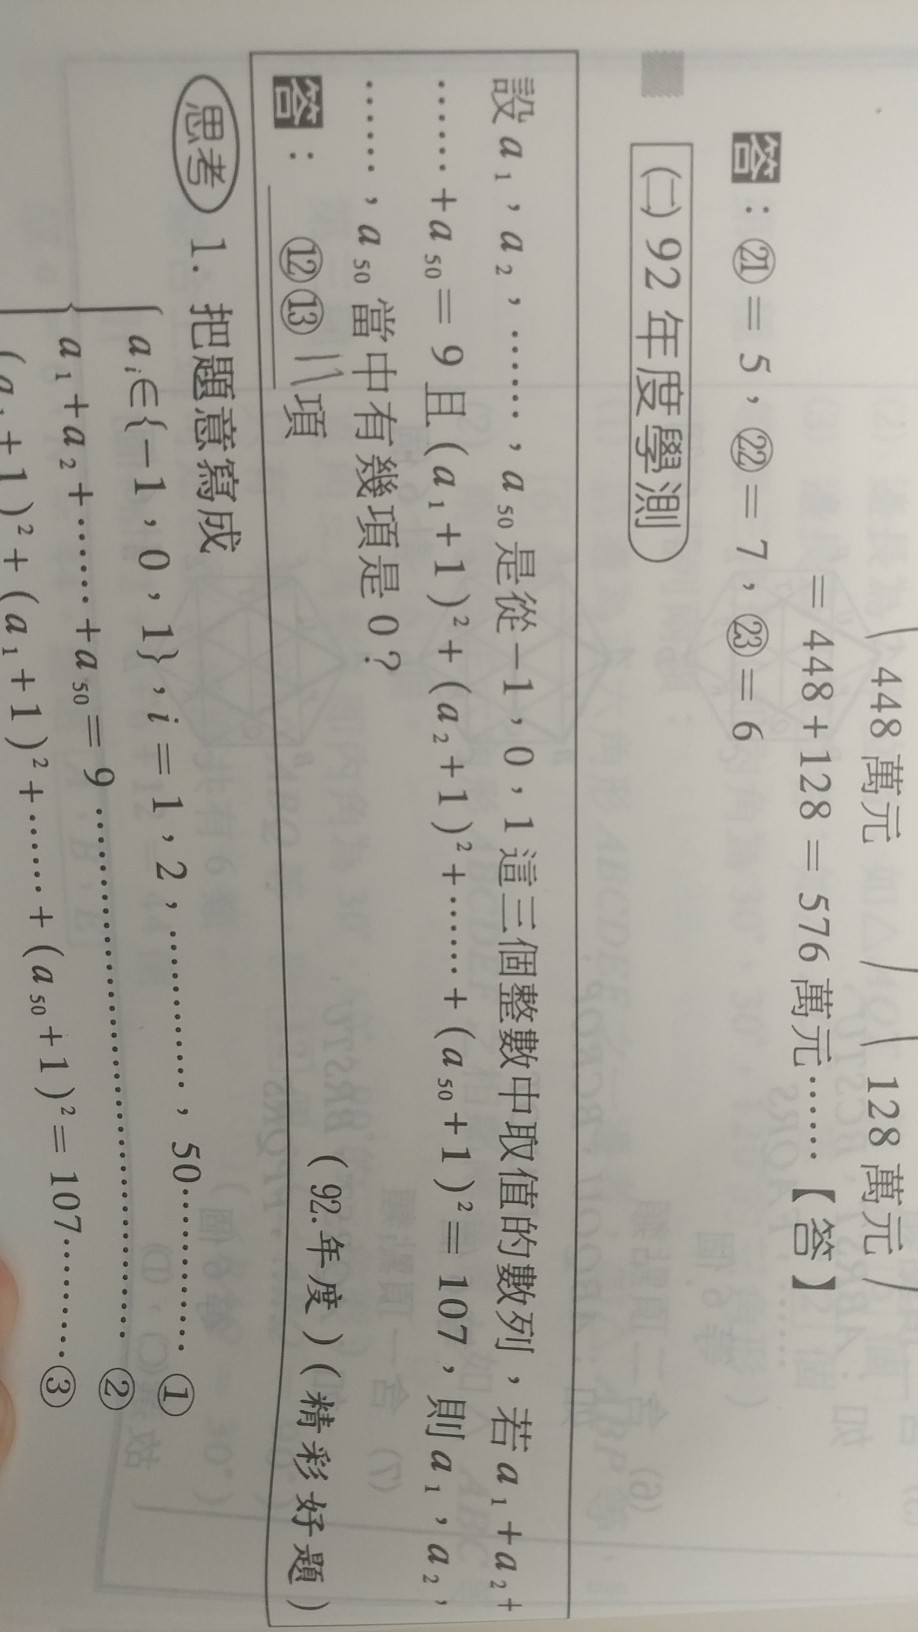 448 萬元 128 萬元
= 448 + 128 = 576 萬元……【答】
答：㉑ = 5，㉒ = 7，㉓ = 6
(二) 92 年度學測
設 a₁，a₂，……，a₅₀ 是從 −1，0，1 這三個整數中取值的數列，若 a₁ + a₂ +
…… + a₅₀ = 9 且 (a₁ + 1)² + (a₂ + 1)² + …… + (a₅₀ + 1)² = 107，則 a₁，a₂，
……，a₅₀ 當中有幾項是 0？
答：⑫⑬ 11 項 (92.年度)(精彩好題)
思考 1. 把題意寫成
aᵢ ∈ {−1，0，1}，i = 1，2，…………，50………… ①
a₁ + a₂ + …… + a₅₀ = 9 ……………………………… ②
(a₁ + 1)² + (a₁ + 1)² + …… + (a₅₀ + 1)² = 107………… ③